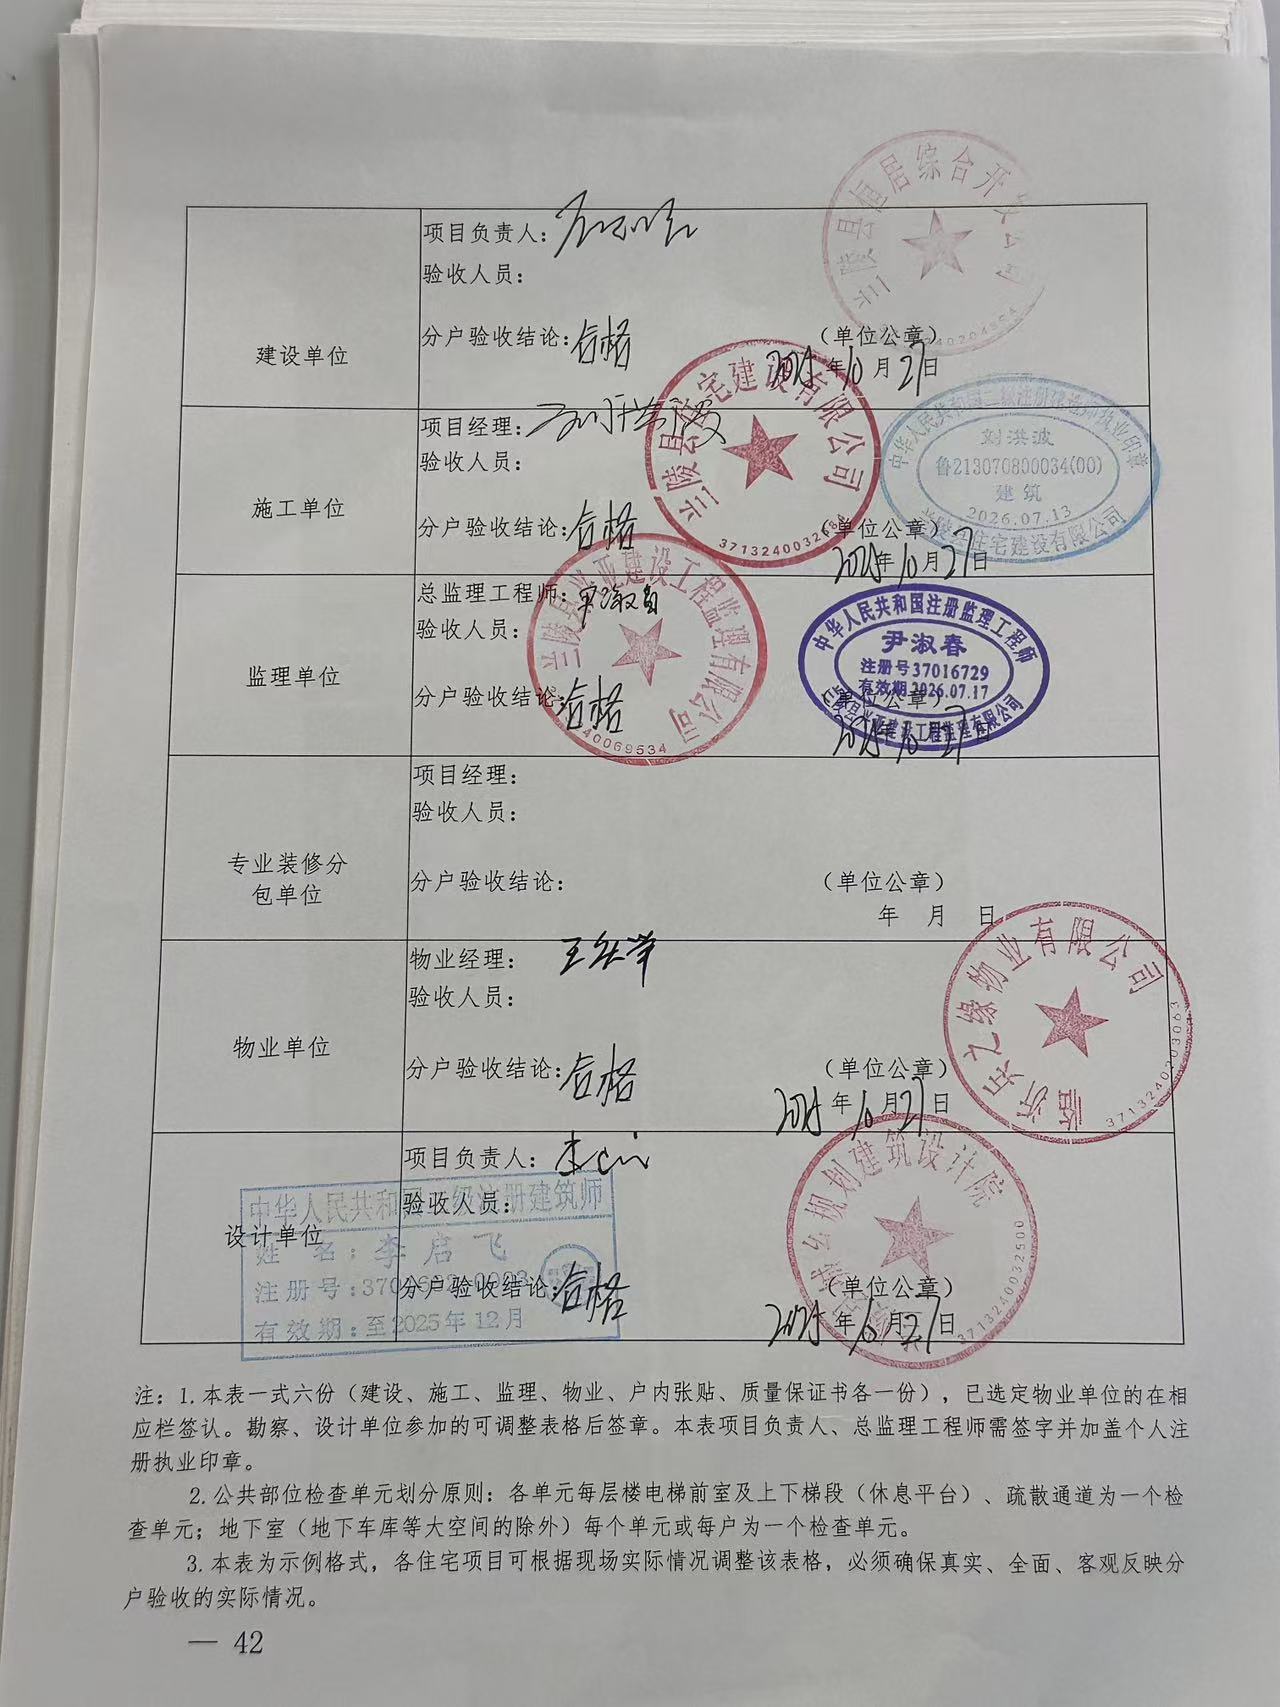 项目负责人：
验收人员：
建设单位
分户验收结论：合格
（单位公章）
2025年10月27日
兰陵县恒居综合开发公司
项目经理：
验收人员：
施工单位
分户验收结论：合格
（单位公章）
2025年10月27日
兰陵县住宅建设有限公司
3713240032684
中华人民共和国二级注册建造师执业印章
刘洪波
鲁213070800034(00)
建筑
2026.07.13
兰陵县住宅建设有限公司
总监理工程师：
验收人员：
监理单位
分户验收结论：合格
（单位公章）
2025年10月27日
兰陵县兴亚建设工程监理有限公司
40069534
中华人民共和国注册监理工程师
尹淑春
注册号37016729
有效期2026.07.17
兰陵县兴亚建设工程监理有限公司
项目经理：
验收人员：
专业装修分
包单位
分户验收结论：
（单位公章）
年 月 日
物业经理：
验收人员：
物业单位
分户验收结论：合格
（单位公章）
2025年10月27日
之缘物业有限公司
3713240203063
项目负责人：
验收人员：
设计单位
分户验收结论：合格
（单位公章）
2025年10月27日
规划建筑设计院
3713240032500
中华人民共和国 级注册建筑师
姓 名：李启飞
注册号：
有效期：至2025年12月
注：1.本表一式六份（建设、施工、监理、物业、户内张贴、质量保证书各一份），已选定物业单位的在相
应栏签认。勘察、设计单位参加的可调整表格后签章。本表项目负责人、总监理工程师需签字并加盖个人注
册执业印章。
2.公共部位检查单元划分原则：各单元每层楼电梯前室及上下梯段（休息平台）、疏散通道为一个检
查单元；地下室（地下车库等大空间的除外）每个单元或每户为一个检查单元。
3.本表为示例格式，各住宅项目可根据现场实际情况调整该表格，必须确保真实、全面、客观反映分
户验收的实际情况。
— 42